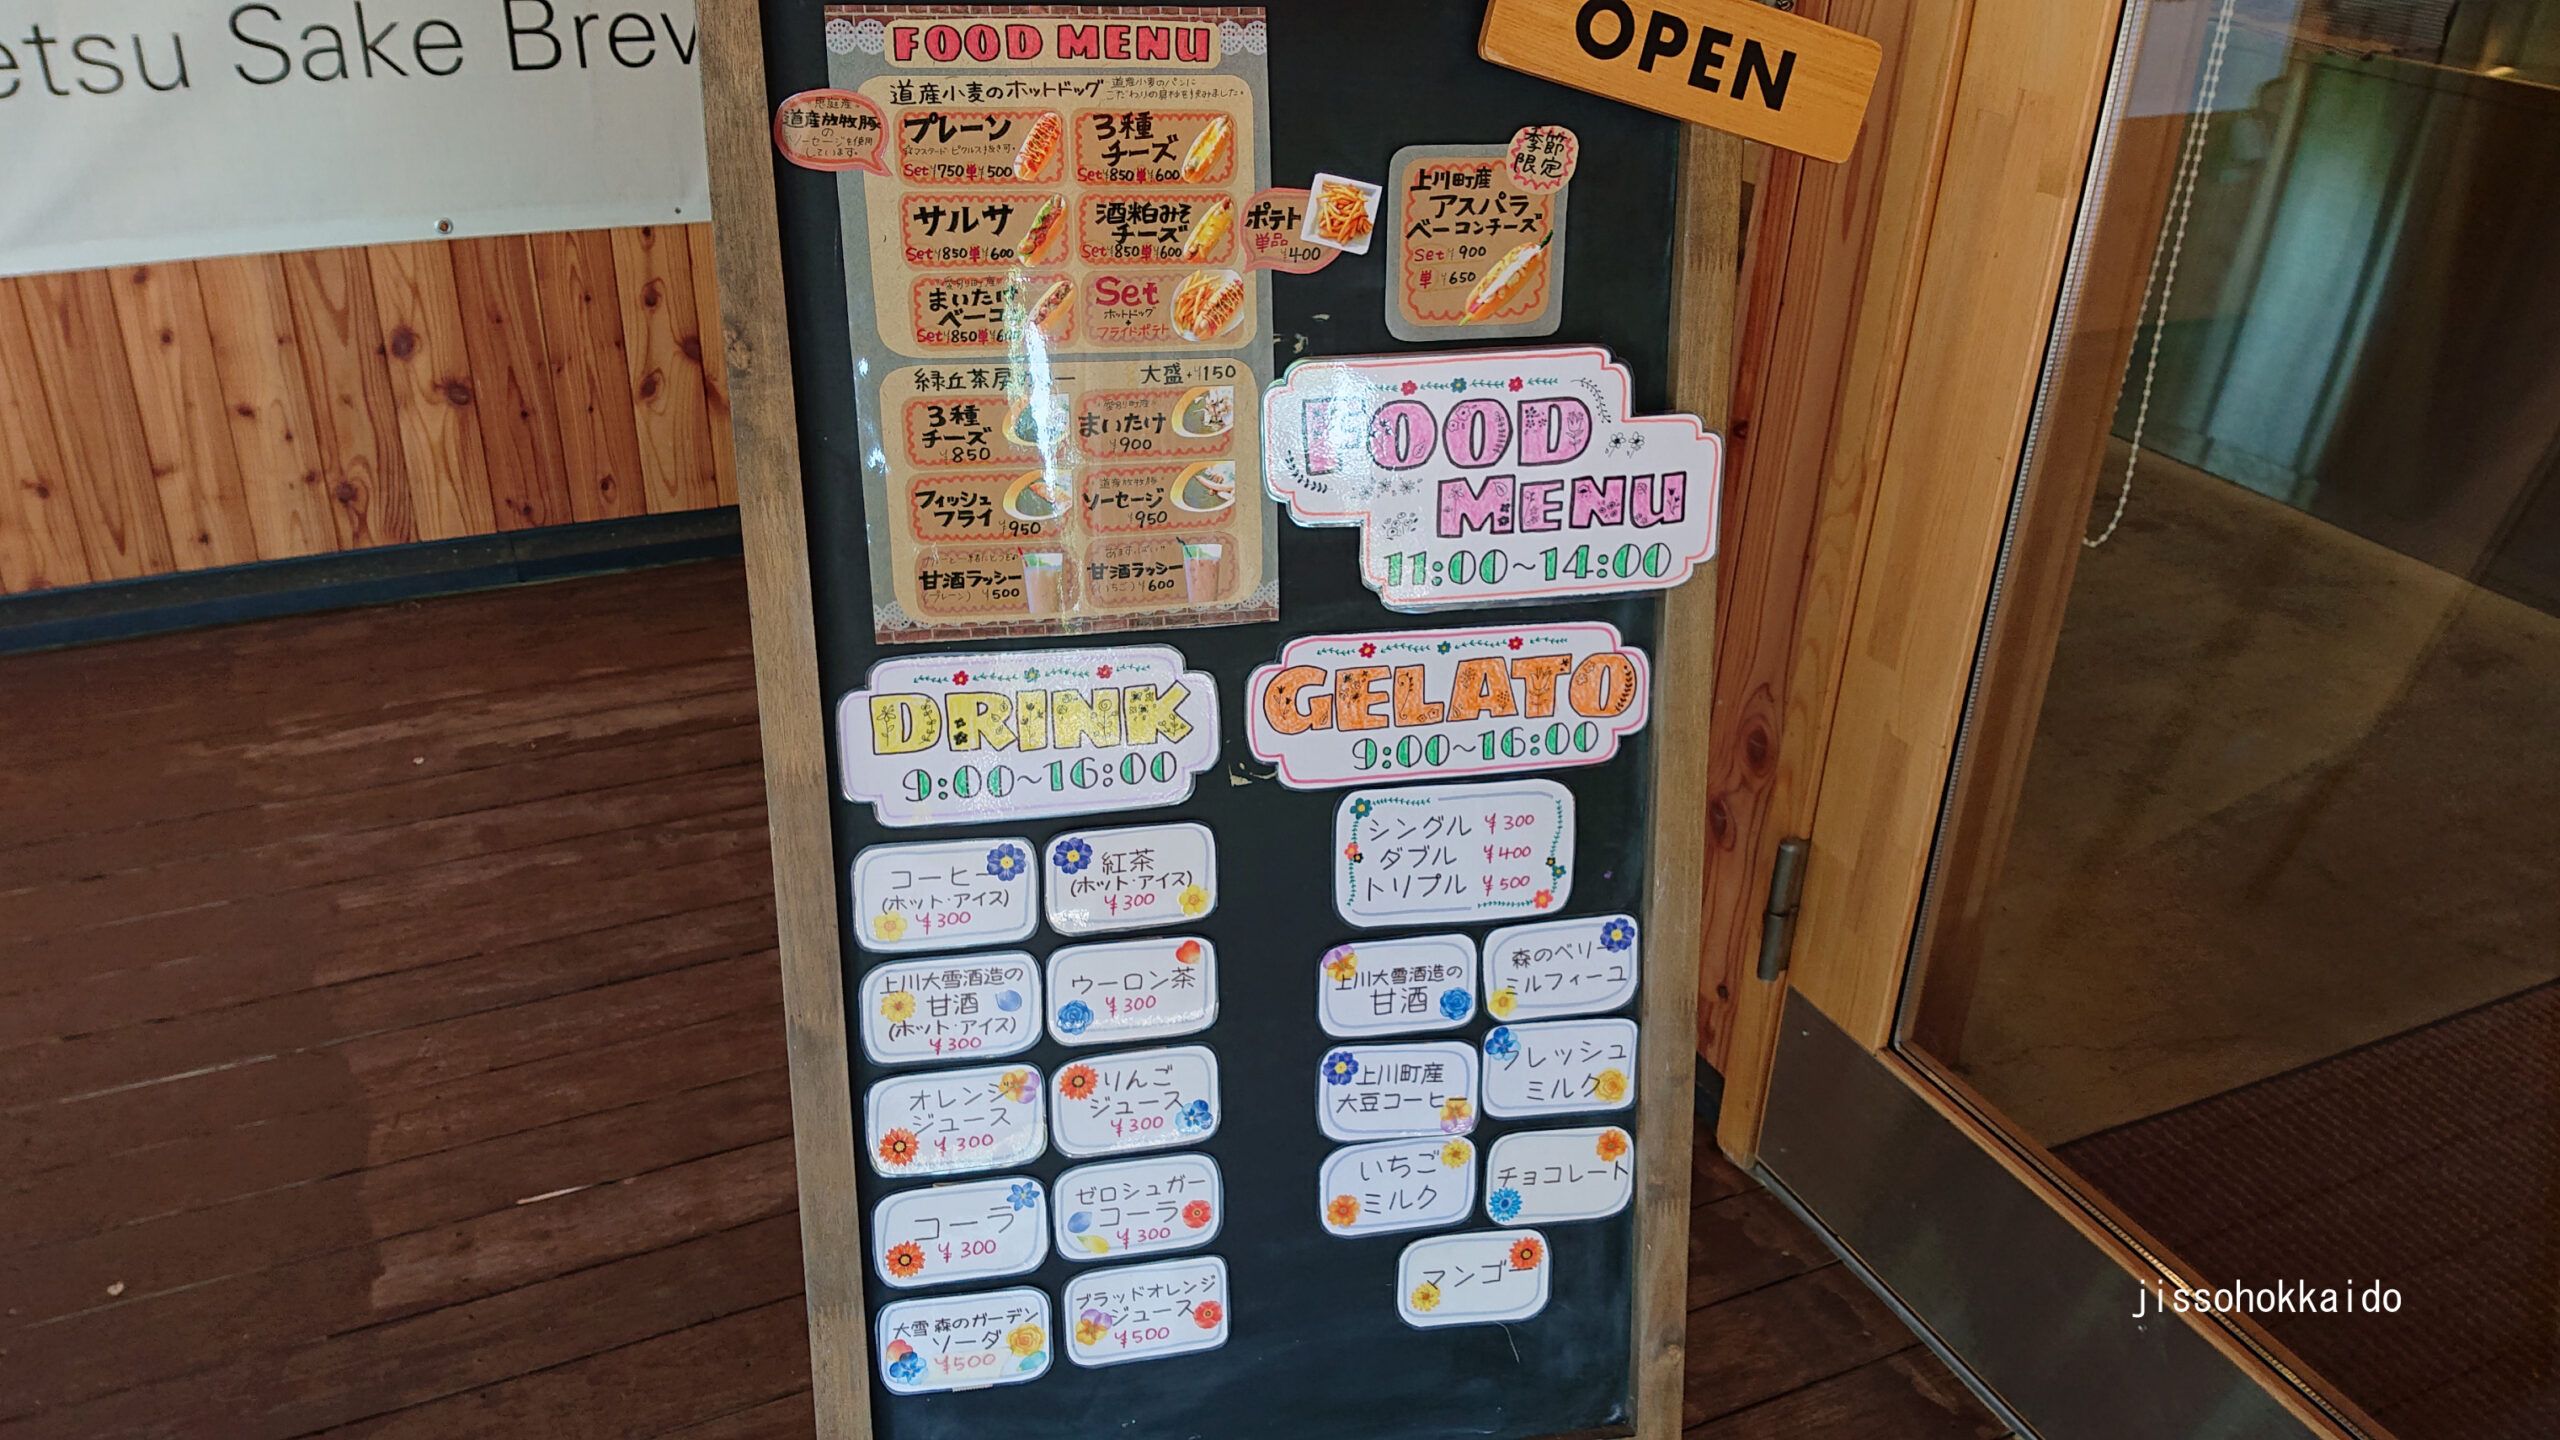 etsu Sake Brew
OPEN
FOOD MENU
道産小麦のホットドッグ
道産小麦のパンに
こだわりの具材を挟みました。
恵庭産
道産放牧豚
の
ソーセージを使用
しています。
プレーン
Set¥750単¥500
3種
チーズ
Set¥850単¥600
サルサ
Set¥850単¥600
酒粕みそ
チーズ
Set¥850単¥600
まいたけ
ベーコ
Set¥850単¥600
Set
ホットドッグ
+
フライドポテト
ポテト
単品
¥400
季節
限定
上川町産
アスパラ
ベーコンチーズ
Set¥900
単¥650
緑丘茶房
大盛+¥150
3種
チーズ
¥850
愛別町産
まいたけ
¥900
フィッシュ
フライ
¥950
道産放牧豚
ソーセージ
¥950
甘酒ラッシー
(プレーン) ¥500
甘酒ラッシー
(いちご) ¥600
FOOD
MENU
11:00~14:00
DRINK
9:00~16:00
コーヒー
(ホット・アイス)
¥300
紅茶
(ホット・アイス)
¥300
上川大雪酒造の
甘酒
(ホット・アイス)
¥300
ウーロン茶
¥300
オレンジ
ジュース
¥300
りんご
ジュース
¥300
コーラ
¥300
ゼロシュガー
コーラ
¥300
大雪 森のガーデン
ソーダ
¥500
ブラッドオレンジ
ジュース
¥500
GELATO
9:00~16:00
シングル ¥300
ダブル ¥400
トリプル ¥500
上川大雪酒造の
甘酒
森のベリー
ミルフィーユ
上川町産
大豆コーヒー
フレッシュ
ミルク
いちご
ミルク
チョコレート
マンゴー
jissohokkaido